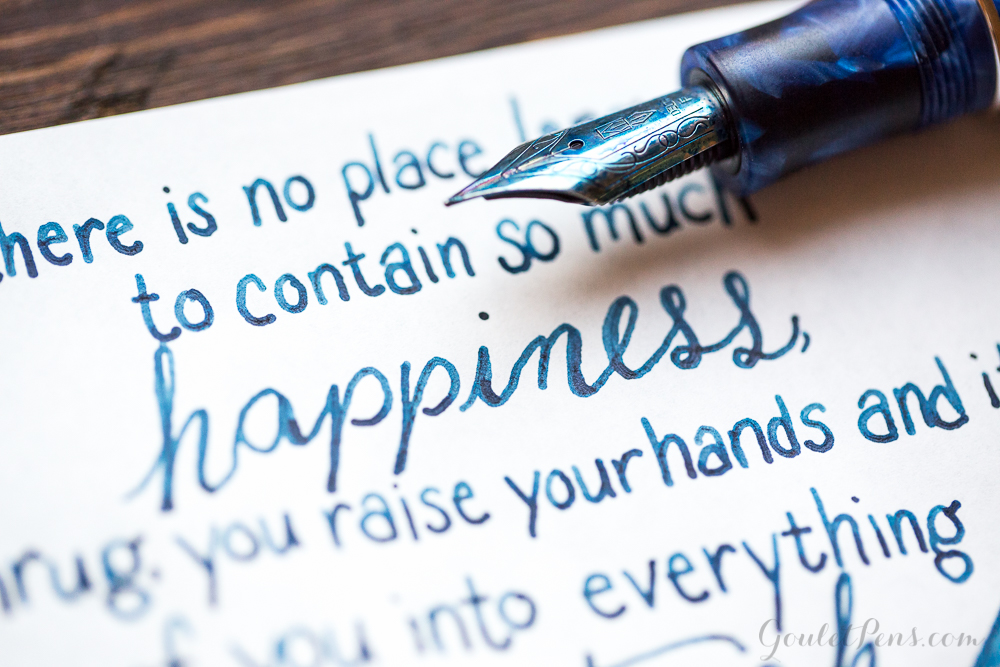 here is no place
to contain so much
happiness,
you raise your hands and
you into everything
GouletPens.com